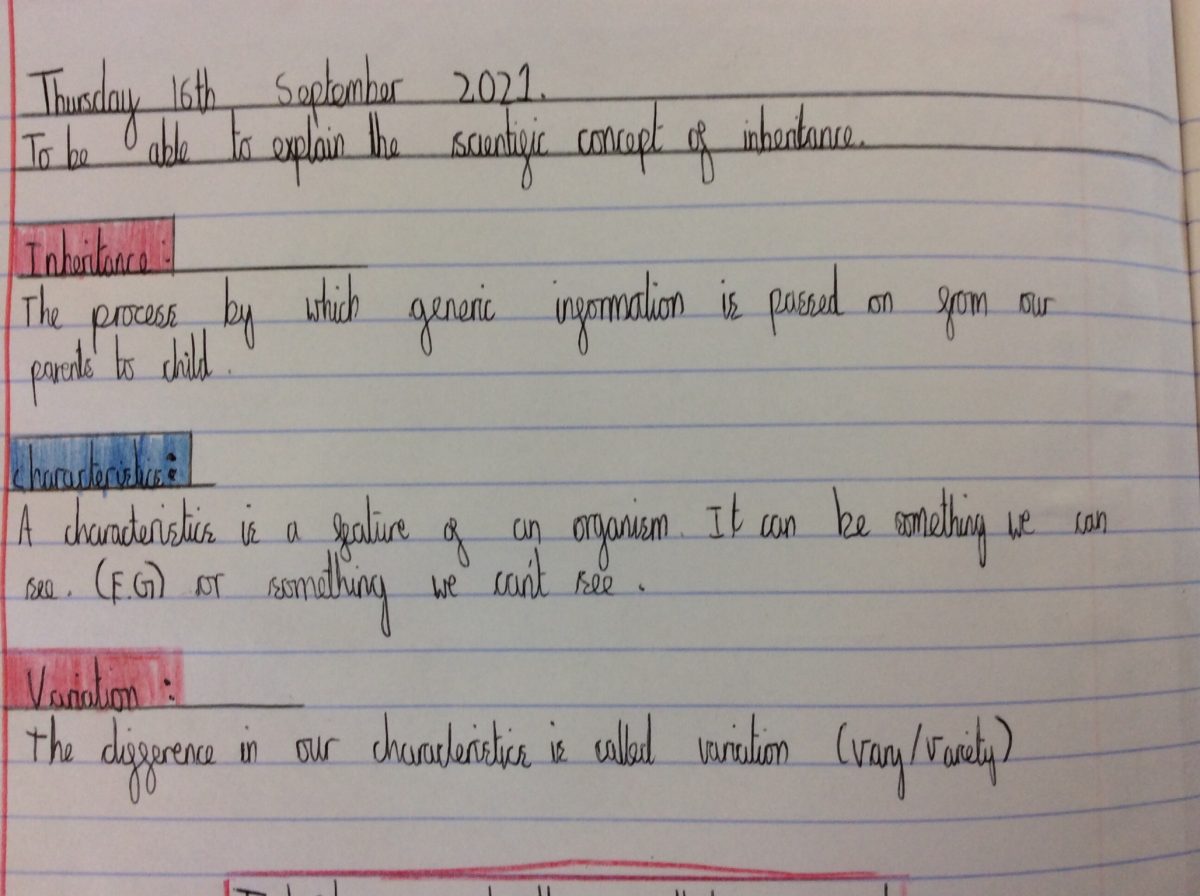 Thursday 16th September 2021.
To be able to explain the scientific concept of inheritance.
Inheritance :
The process by which generic information is passed on from our
parents to child.
Characteristics:
A characteristics is a feature of an organism. It can be something we can
see. (E.G) or something we can't see.
Variation :
The difference in our characteristics is called variation (vary/variety)